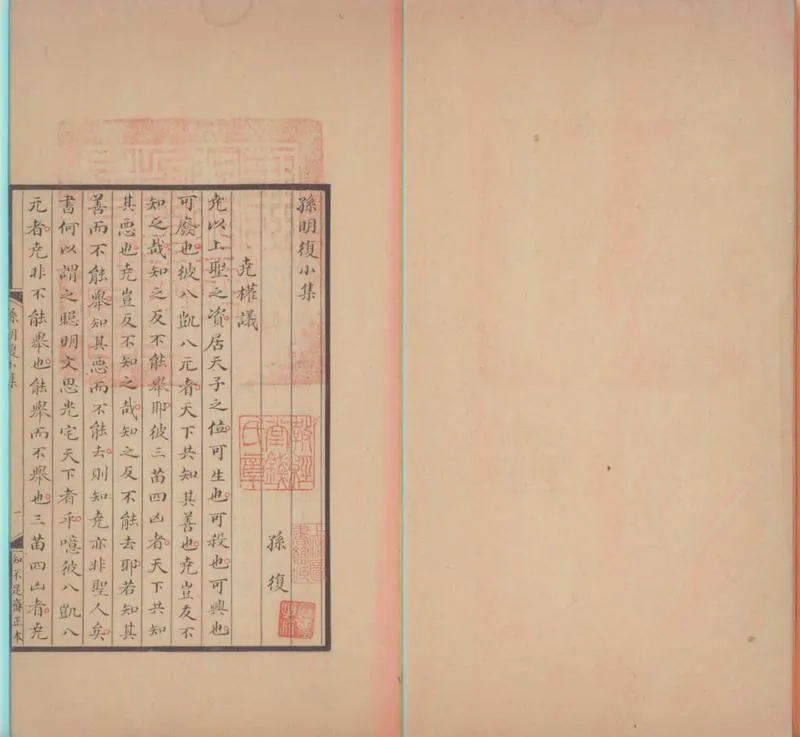 孫明復小集
孫復
堯權議
堯以上聖之資居天子之位可生也可殺也可興也
可廢也彼八凱八元者天下共知其善也堯豈反不
知之哉知之反不能舉耶彼三苗四凶者天下共知
其惡也堯豈反不知之哉知之反不能去耶若知其
善而不能舉知其惡而不能去則知堯亦非聖人矣
書何以謂之聰明文思光宅天下者乎噫彼八凱八
元者堯非不能舉也能舉而不舉也三苗四凶者堯
孫明復小集
一
知不足齋正本